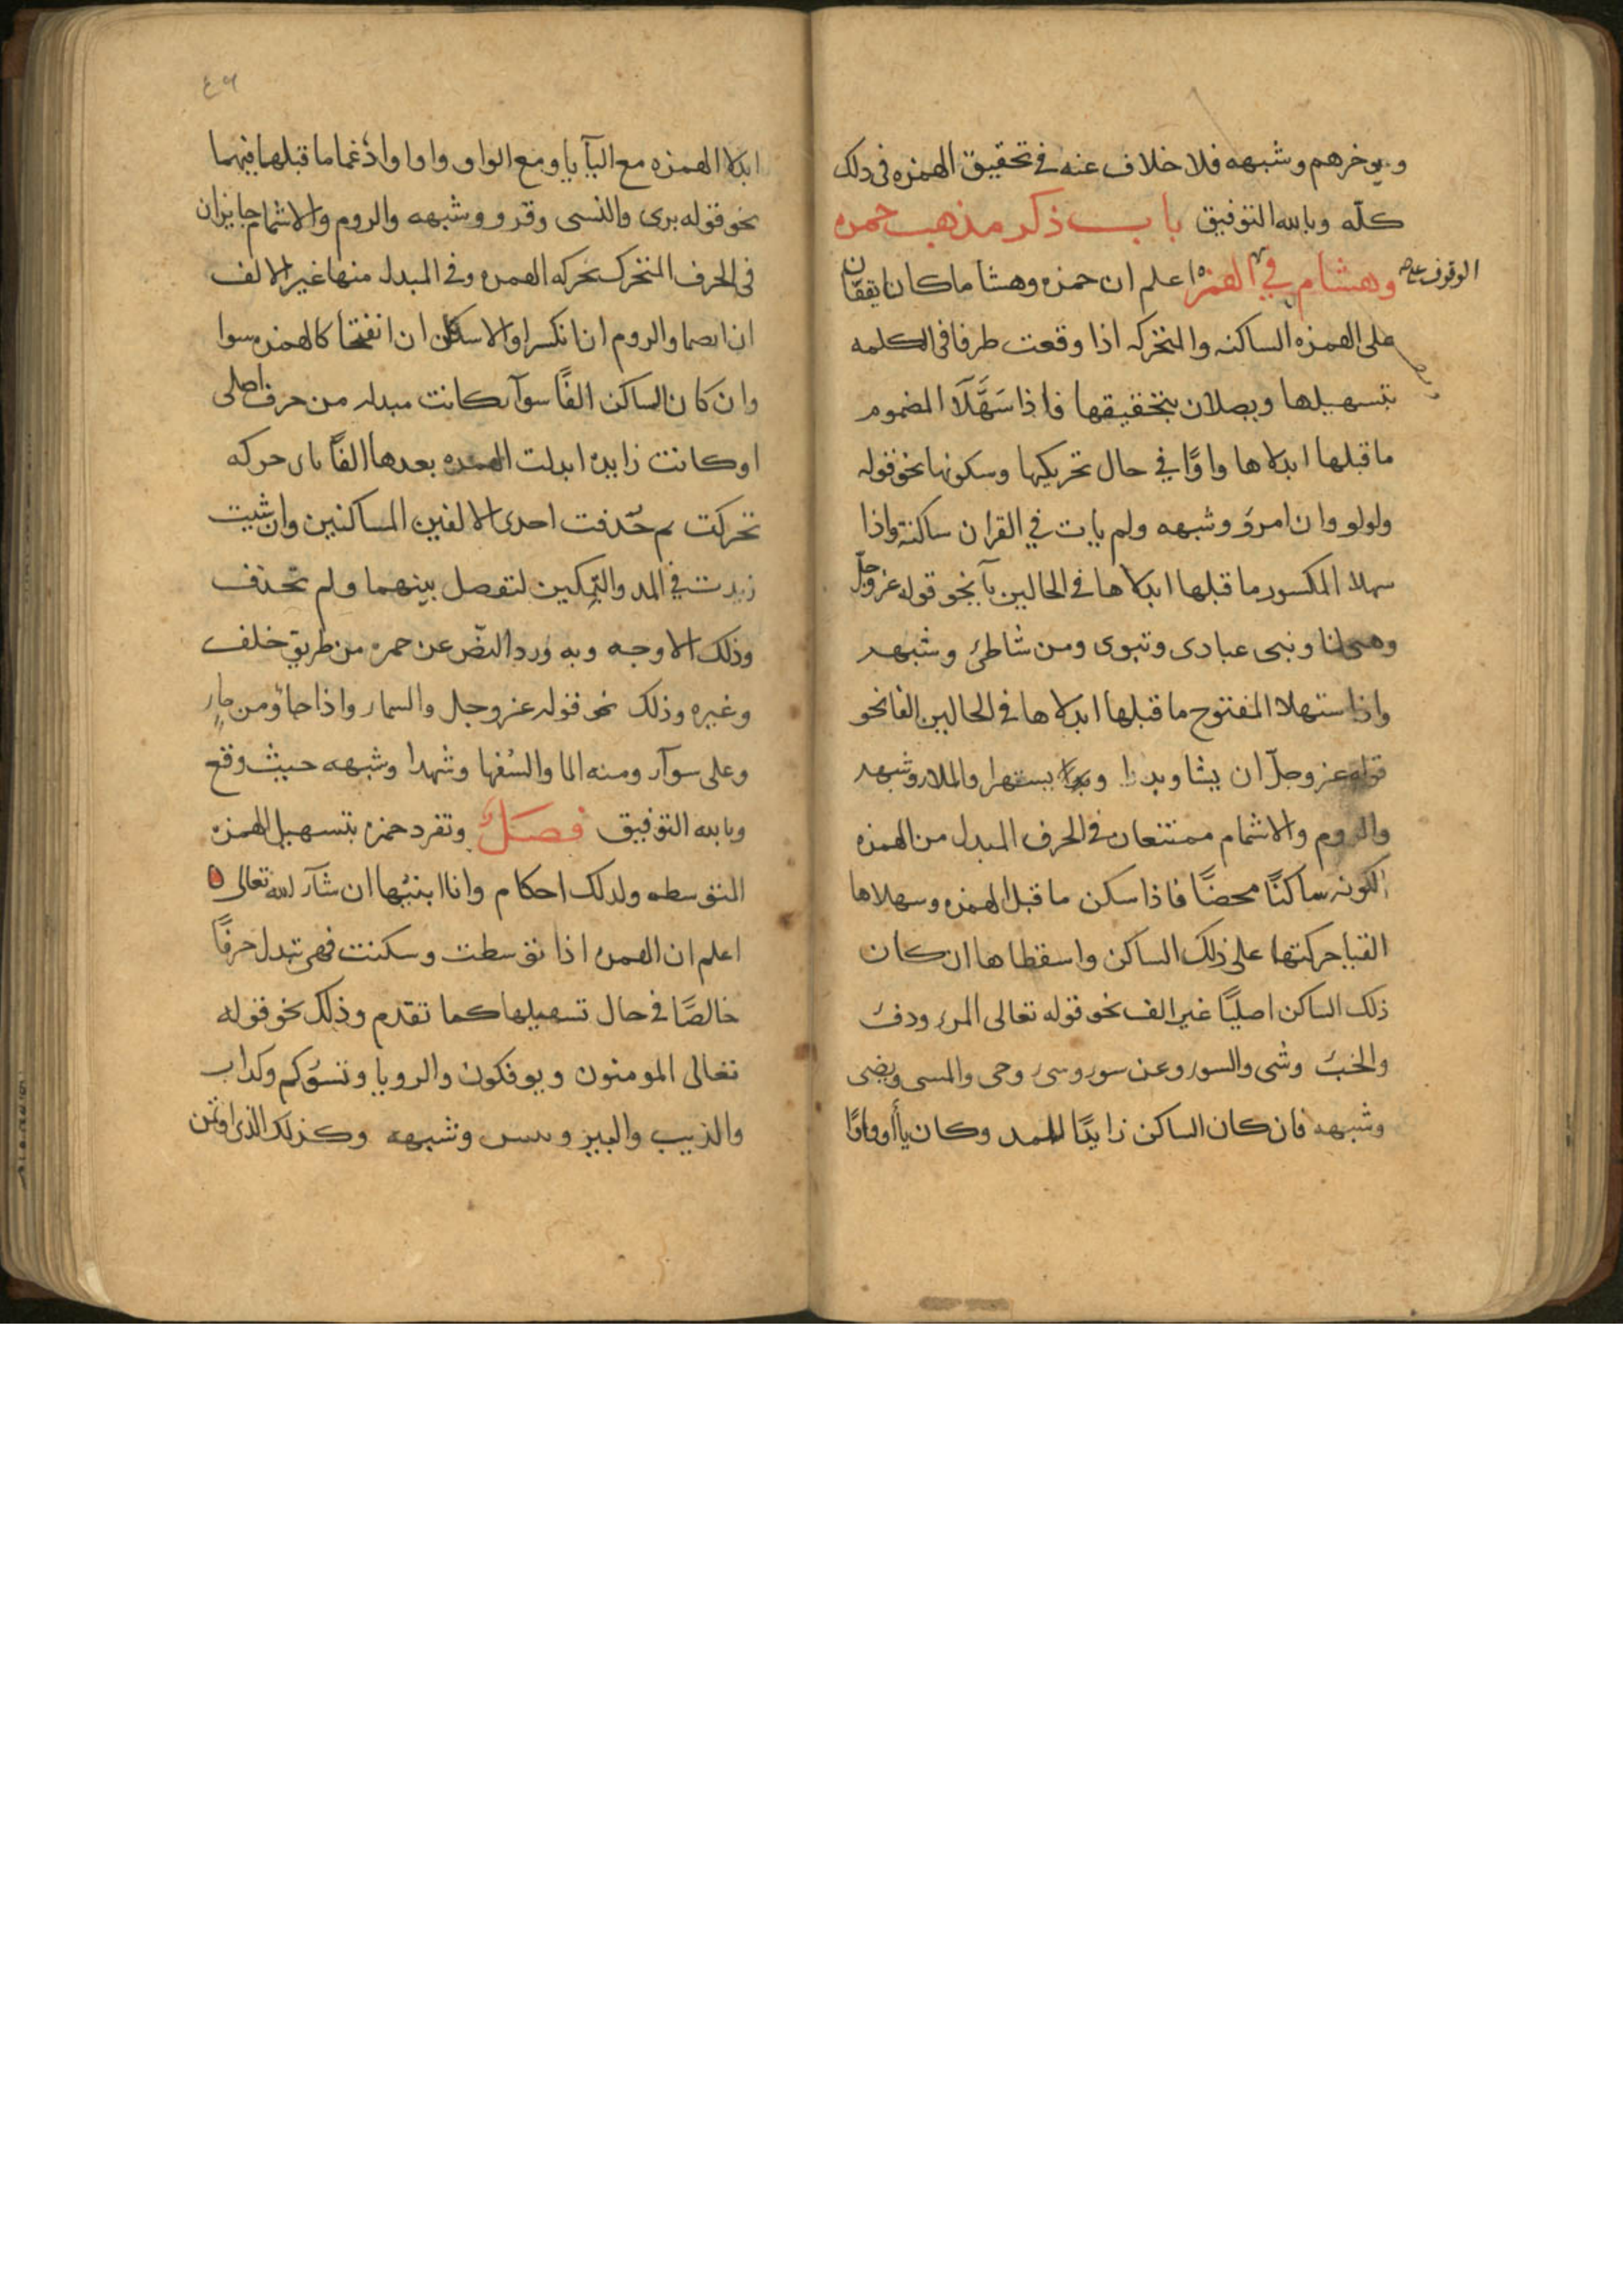 ويوخرهم وشبهه فلا خلاف عنه في تحقيق الهمزه فى ذلك
كلّه وبالله التوفيق باب ذكر مذهب حمزه
وهشام في الوقوف على الهمزه اعلم ان حمزه وهشاما كانا يقفان
على الهمزه الساكنه والمتحركه اذا وقعت طرفا فى الكلمه
بتسهيلها ويصلان بتحقيقها فاذا سَهَّلَا المضموم
ما قبلها ابدلاها واوًا في حال تحريكها وسكونها نحو قوله
ولولو وان امرؤ وشبهه ولم يات في القران ساكنة واذا
سهلا المكسور ما قبلها ابدلاها في الحالين يآ نحو قوله عز وجلّ
وهيى لنا ونبى عبادى وتبوى ومن شاطئ وشبهه
واذا سهلا المفتوح ما قبلها ابدلاها في الحالين الفا نحو
قوله عز وجلّ ان يشا وبدا ويستهزا والملا وشبهه
والروم والاشمام ممتنعان في الحرف المبدل من الهمزه
لكونه ساكنًا محضًا فاذا سكن ما قبل الهمزه وسهلاها
القيا حركتها على ذلك الساكن واسقطاها ان كان
ذلك الساكن اصليًا غير الف نحو قوله تعالى المرء ودفء
والخبء وشى والسوء وعن سوء وسىء وجى والمسى ويضى
وشبهه فان كان الساكن زايدًا للمد وكان ياً او واوًا
٤٦
ابدلا الهمزه مع اليآ يا ومع الواو واوا وادغما ما قبلها فيهما
نحو قوله برى والنسى وقرو وشبهه والروم والاشمام جايزان
فى الحرف المتحرك بحركه الهمزه وفى المبدل منها غير الالف
ان انضما والروم ان انكسرا والاسكان ان انفتحا كالهمزه سوا
وان كان الساكن الفًا سوآ كانت مبدله من حرف اصلى
او كانت زايده ابدلت الهمزه بعدها الفًا باى حركه
تحركت ثم حُذفت احدى الالفين الساكنين وان شيت
زيدت في المد والتمكين لتفصل بينهما ولم تحذف
وذلك الاوجه وبه ورد النصّ عن حمزه من طريق خلف
وغيره وذلك نحو قوله عز وجل والسماء واذا جاؤ ومن ماء
وعلى سوآء ومنه الما والسُفها وشهدا وشبهه حيث وقع
وبالله التوفيق فصل وتفرد حمزه بتسهيل الهمزه
المتوسطه ولذلك احكام وانا ابنيها ان شآء الله تعالى
اعلم ان الهمزه اذا توسطت وسكنت فهى تبدل حرفًا
خالصًا في حال تسهيلها كما تقدم وذلك نحو قوله
تعالى المومنون ويوفكون والرويا وتسؤكم وكداب
والذيب والبير وبيس وشبهه وكذلك الذى اوتمن